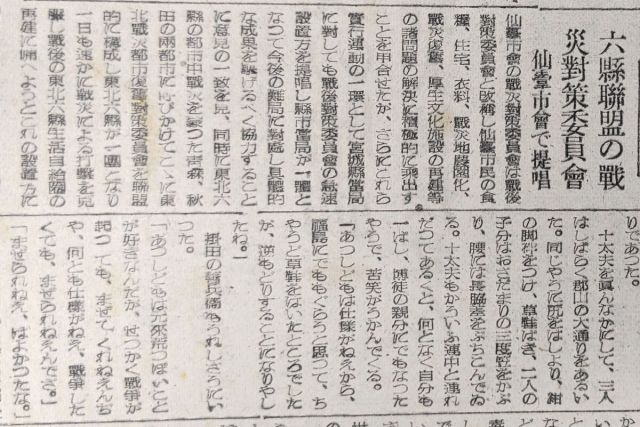 六縣聯盟の戰
災對策委員會
仙臺市會で提唱
仙臺市會の戰災對策委員會は戰後
對策委員會と改稱し仙臺市民の食
糧、住宅、衣料、戰災地農園化、
戰災復舊、厚生文化施設の再建等
の諸問題の解決に積極的に乘出す
ことを申合せたが、さらにこれら
實行運動の一環として宮城縣當局
に對しても戰後對策委員會の急速
設置方を提唱し縣市當局が一體と
なつて今後の難局に對處し具體的
な成果を擧げるべく協力すること
に意見の一致を見、同時に東北六
縣の都市中戰災を蒙つた靑森、秋
田の兩都市にも呼びかけてここに東
北戰災都市復舊對策委員會を聯盟
的に構成し東北六縣が一團となり
一日も速かに戰災による打擊を克
服し戰後の東北六縣生活自給圈の
再建に備へようとこれの設置方に
りであつた。
十太夫を眞んなかにして、三人
はしばらく郡山の大通りをあるい
た。同じやうに尻をはしより、紺
の脚絆をつけ、草鞋ばき、二人の
子分はおさだまりの三度笠をかぶ
り、腰には長脇差をぶちこんでゐ
る。十太夫もかういふ連中と連れ
だつてあるくと、何となく自分も
一ぱし、博徒の親分にでもなつた
やうで、苦笑がうかんでくる。
「あつしどもは仕樣がねえから、
福島にでももぐらうと思つて、ち
やうど草鞋をはいたところでした
が、逆もどりすることになりやし
たね。」
掛田の善兵衞もうれしさうにい
つた。
「あつしどもは元來荒つぽいこと
が好きなんだが、せつかく戰爭が
起つても、ませてくれねえんぢ
や、何とも仕樣がねえ、戰爭した
くても、ませられねえんでさ。」
「ませられねえ、はよかつたな。」